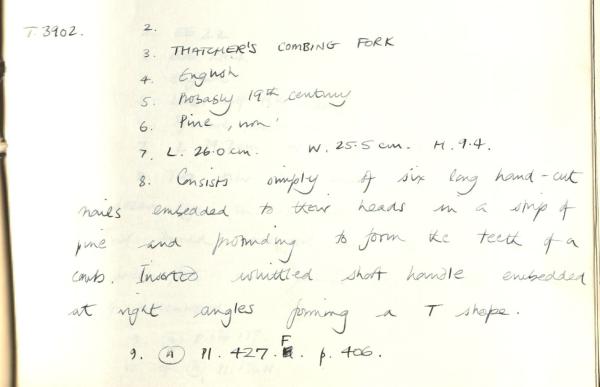 T. 3902.
2.
3. THATCHER'S COMBING FORK
4. English
5. Probably 19th century
6. Pine, iron
7. L. 26.0 cm. W. 25.5 cm. H. 9.4.
8. Consists simply of six long hand-cut
nails embedded to their heads in a strip of
pine and protruding to form the teeth of a
comb. Inserted whittled shaft handle embedded
at right angles forming a T shape.
9. Pl. 427. F. p. 406.